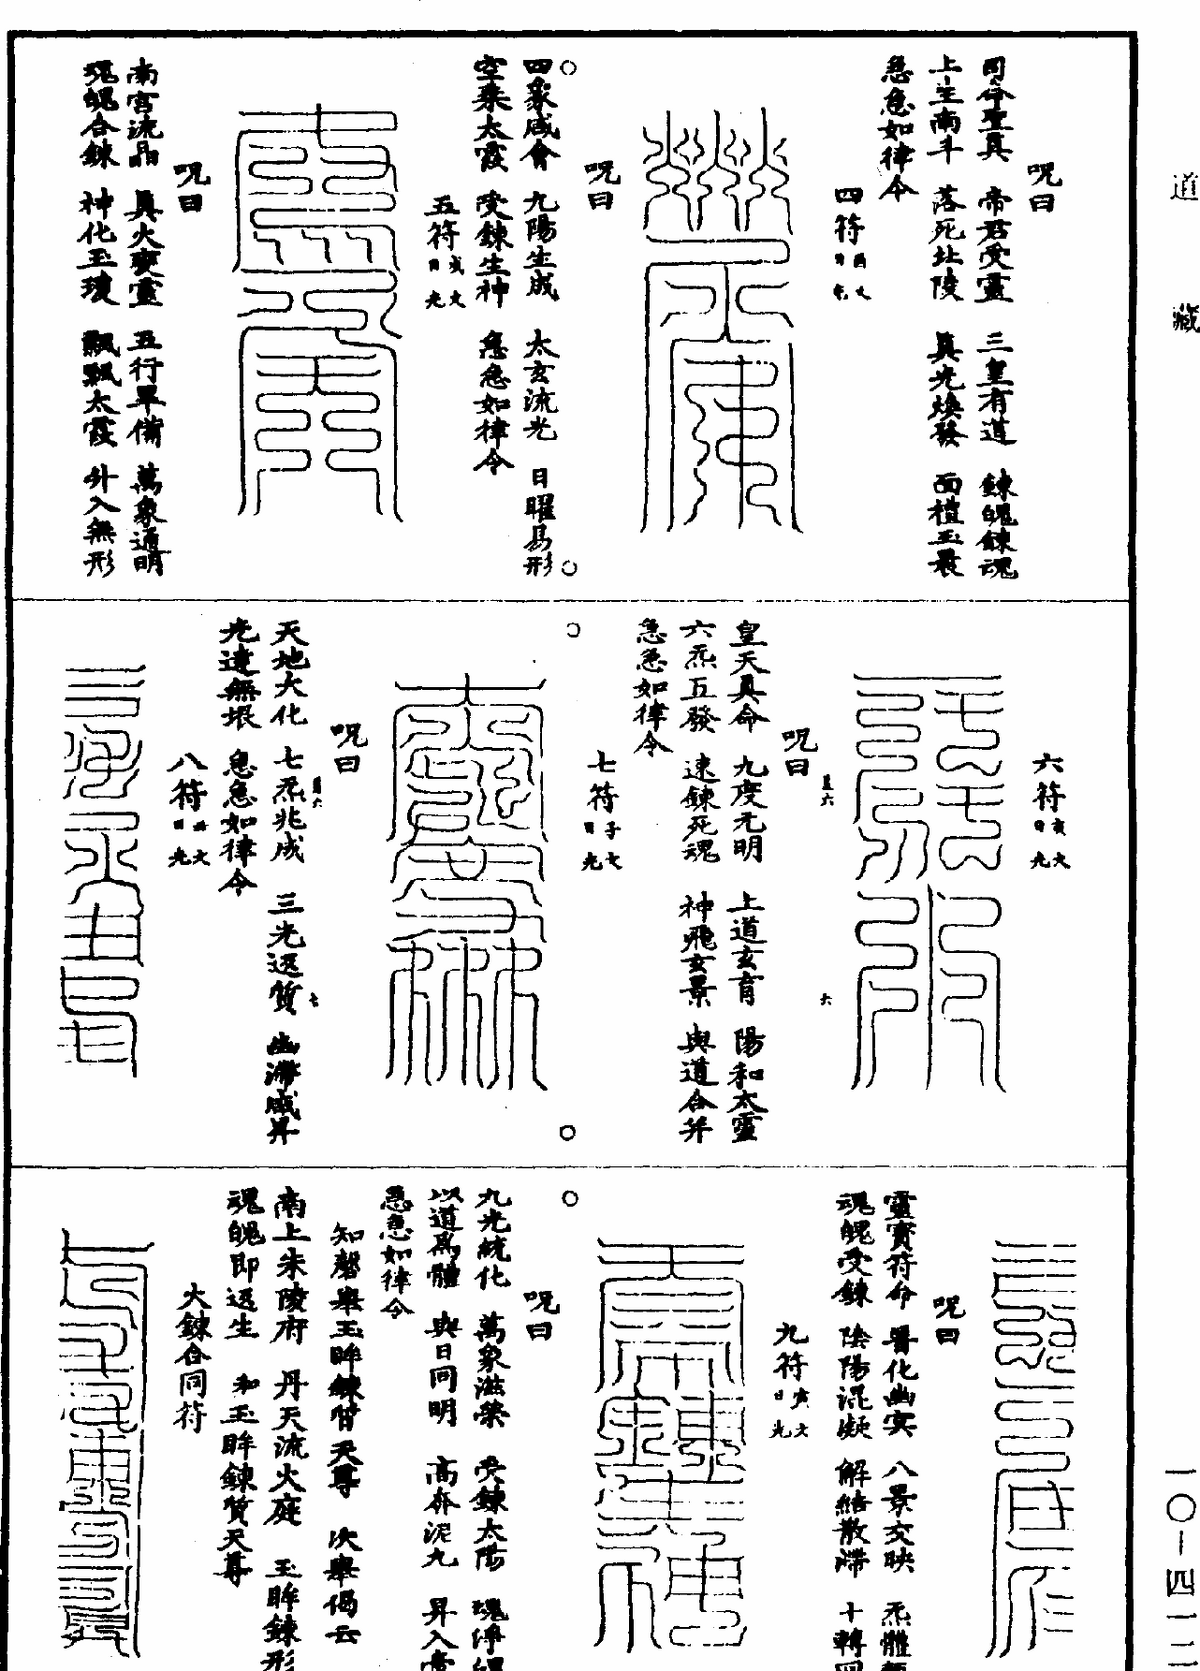 道藏
呪曰
司命聖真 帝君受靈 三皇有道 鍊魄鍊魂
上生南斗 落死北陵 真光煥發 面禮玉晨
急急如律令
四符
呪曰
四象咸會 九陽生成 太玄流光 日曜易形
空乘太霞 受鍊生神 急急如律令
五符
呪曰
南宮流晶 真火變靈 五行畢備 萬象通明
魂魄合鍊 神化玉瓊 飄飄太霞 升入無形
六符
呪曰
皇天真命 九度元明 上道玄育 陽和太靈
六炁五發 速鍊死魂 神飛玄景 與道合并
急急如律令
七符
呪曰
天地大化 七炁兆成 三光返質 幽滯咸昇
光達無垠 急急如律令
八符
呪曰
靈寶符命 普化幽冥 八景交映 炁體
魂魄受鍊 陰陽混凝 解結散滯 十轉
九符
呪曰
九光統化 萬象滋榮 受鍊太陽 魂淨
以道為體 與日同明 高奔泥丸 昇入
急急如律令
知磬舉玉眸鍊質天尊 次舉偈云
南上朱陵府 丹天流火庭 玉眸鍊形
魂魄即返生 和玉眸鍊質天尊
大鍊合同符
一〇－四一二